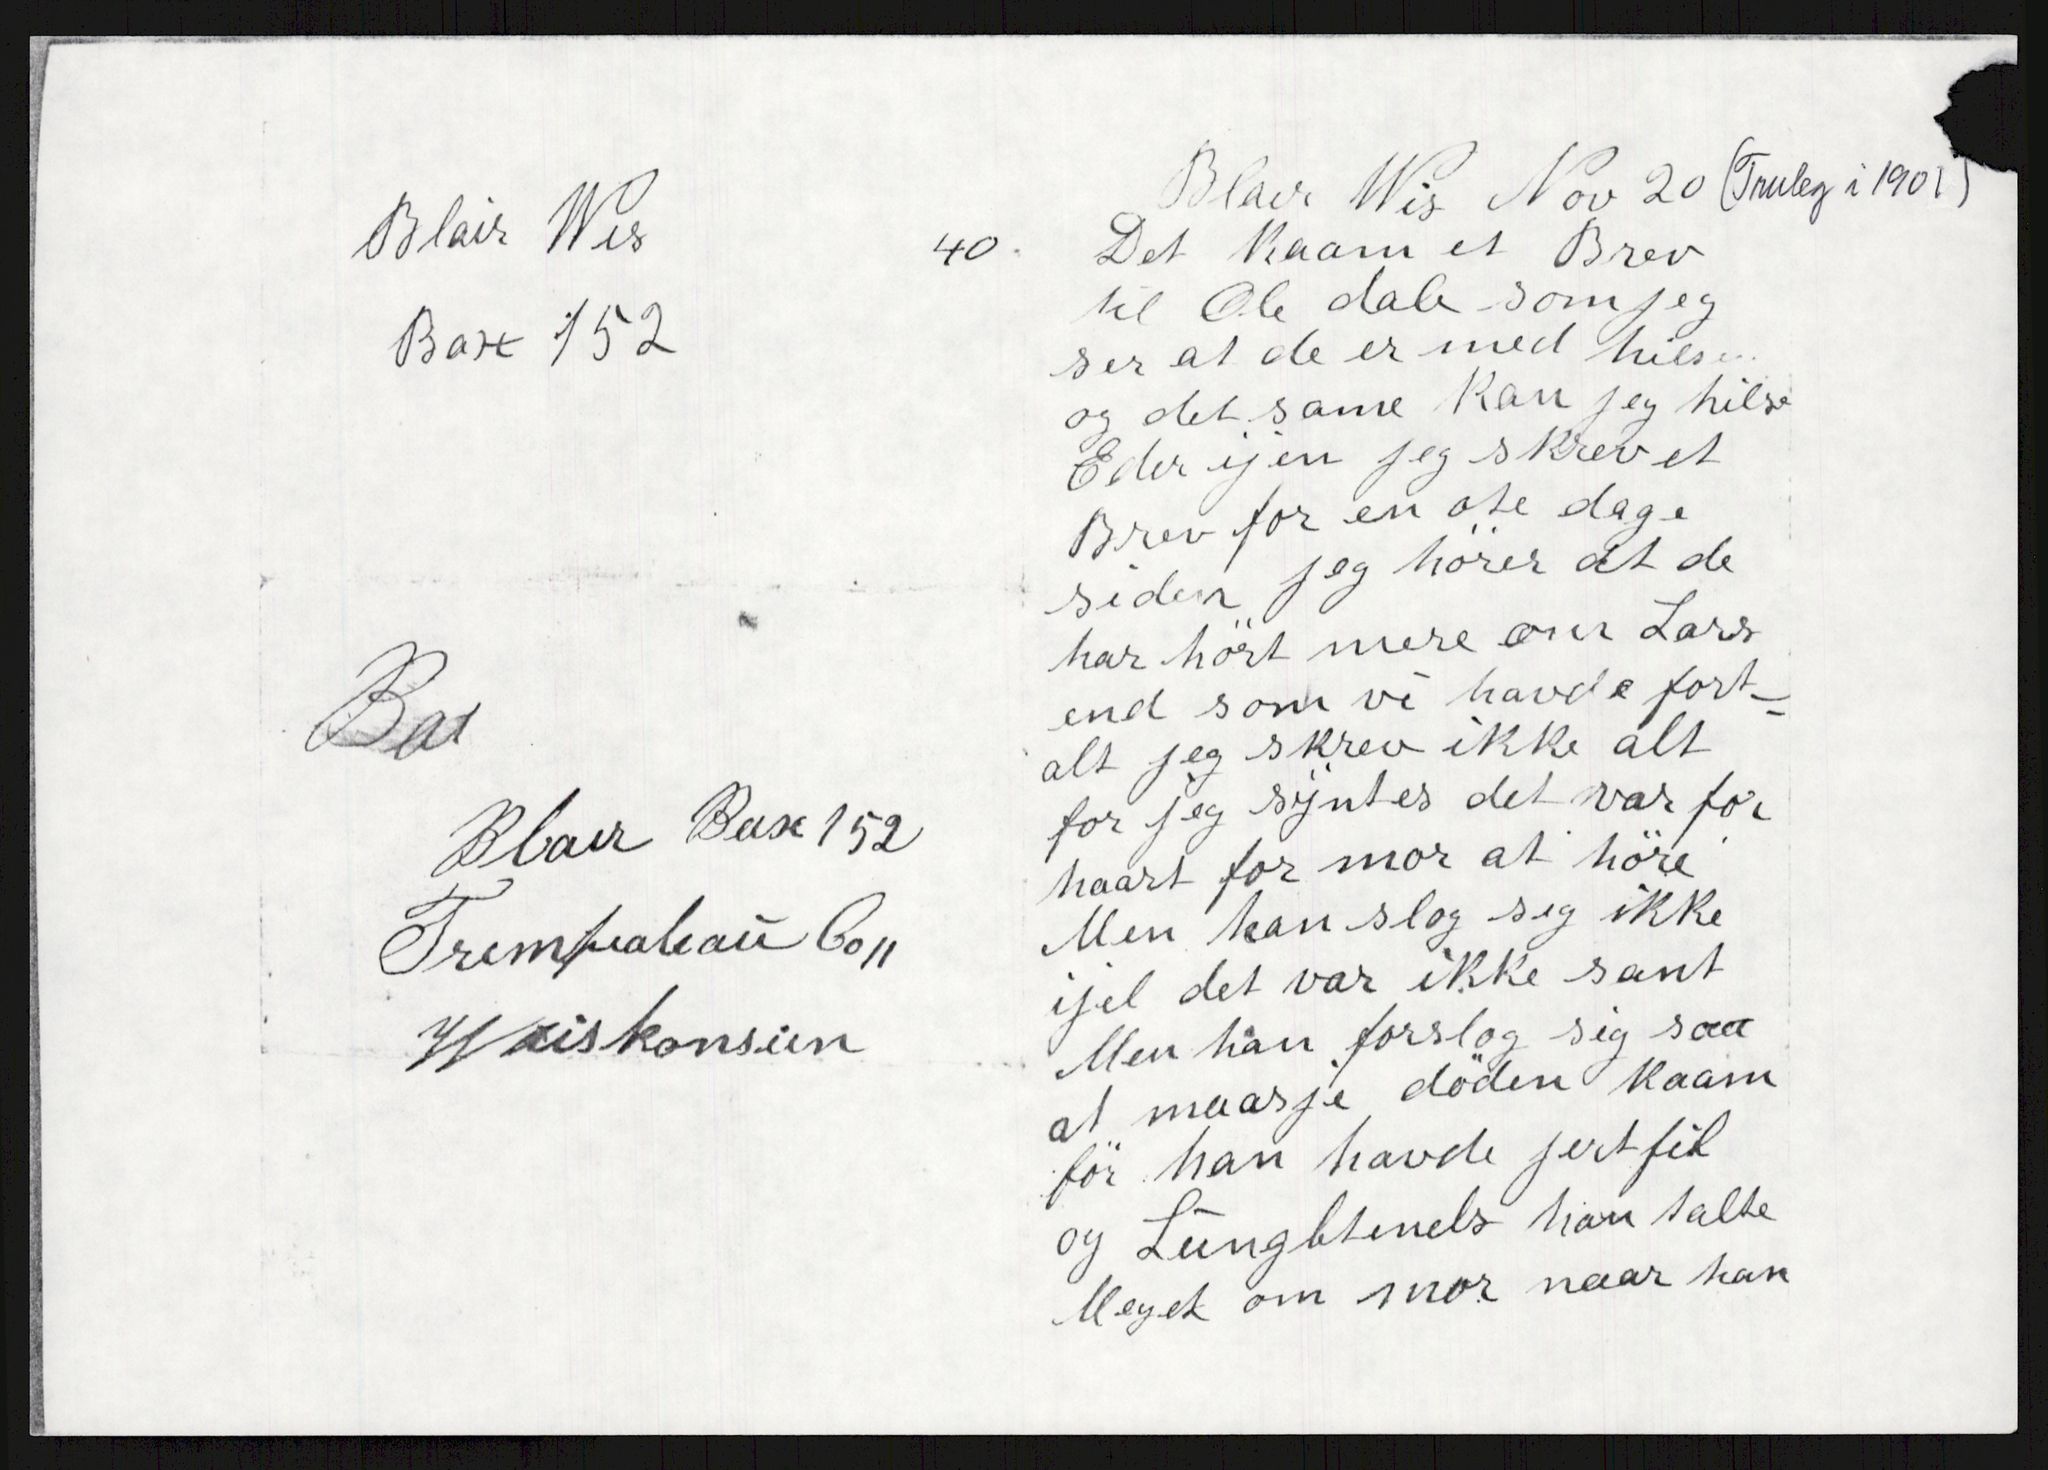 Blair Wis
Box 152
Box
Blair Box 152
Trempealeau Co 11
Wiskonsien
Blair Wis Nov 20 (Truleg i 1901)
40. Det kaam et Brev
til Ole dale som jeg
ser at de er med hilse
og det same kan jeg hilse
Eder ijen jeg skrev et
Brev for en ote dage
siden jeg hörer at de
har hört mere om Lars
end som vi havde fort-
alt jeg skrev ikke alt
for jeg syntes det var for
haart for mor at höre
Men han slog seg ikke
ijel det var ikke sant
Men han forslog sig saa
at maasje döden kaam
för han havde jertfeil
og Lungbtenels han talte
Meget om mor naar han